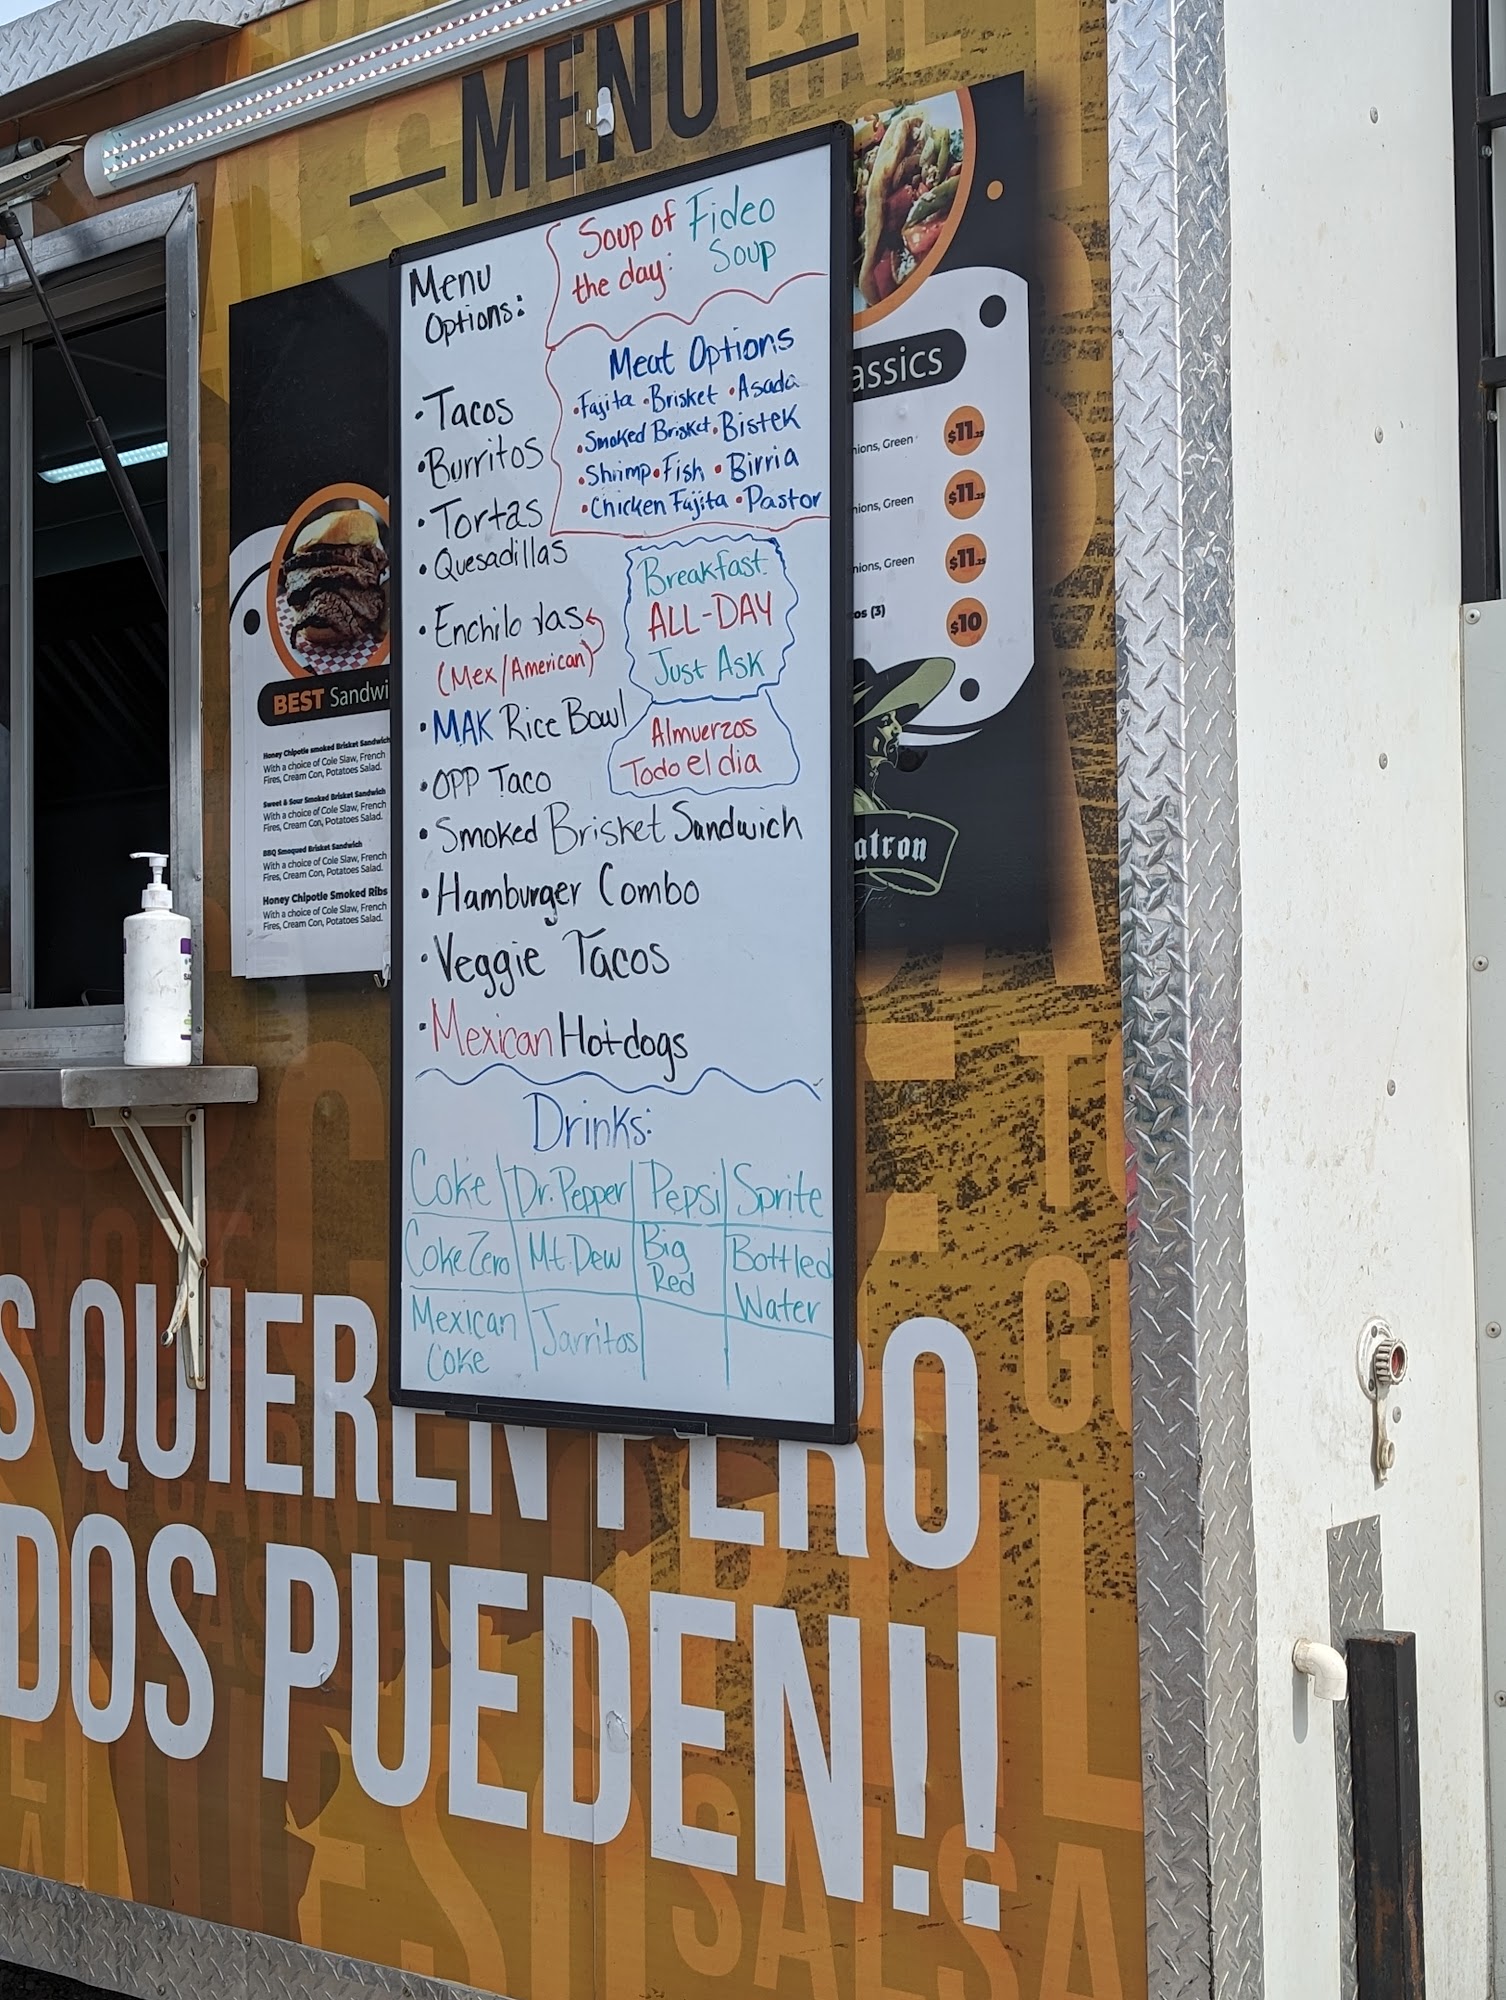 MENU
Menu
Options:
Soup of
the day:
Fideo
Soup
• Tacos
• Burritos
• Tortas
• Quesadillas
• Enchiladas
(Mex/American)
• MAK Rice Bowl
• OPP Taco
• Smoked Brisket Sandwich
• Hamburger Combo
• Veggie Tacos
• Mexican Hotdogs
Meat Options
• Fajita • Brisket • Asada
• Smoked Brisket • Bistek
• Shrimp • Fish • Birria
• Chicken Fajita • Pastor
Breakfast
ALL-DAY
Just Ask
Almuerzos
Todo el dia
Drinks:
Coke | Dr. Pepper | Pepsi | Sprite
Coke Zero | Mt. Dew | Big Red | Bottled Water
Mexican Coke | Jarritos
BEST Sandwi
Honey Chipotle smoked Brisket Sandwich
With a choice of Cole Slaw, French
Fires, Cream Con, Potatoes Salad.
Sweet & Sour Smoked Brisket Sandwich
With a choice of Cole Slaw, French
Fires, Cream Con, Potatoes Salad.
BBQ Smoqued Brisket Sandwich
With a choice of Cole Slaw, French
Fires, Cream Con, Potatoes Salad.
Honey Chipotle Smoked Ribs
With a choice of Cole Slaw, French
Fires, Cream Con, Potatoes Salad.
assics
nions, Green $11.25
nions, Green $11.25
nions, Green $11.25
os (3) $10
atron
S QUIEREN PERO
DOS PUEDEN!!
SALSA